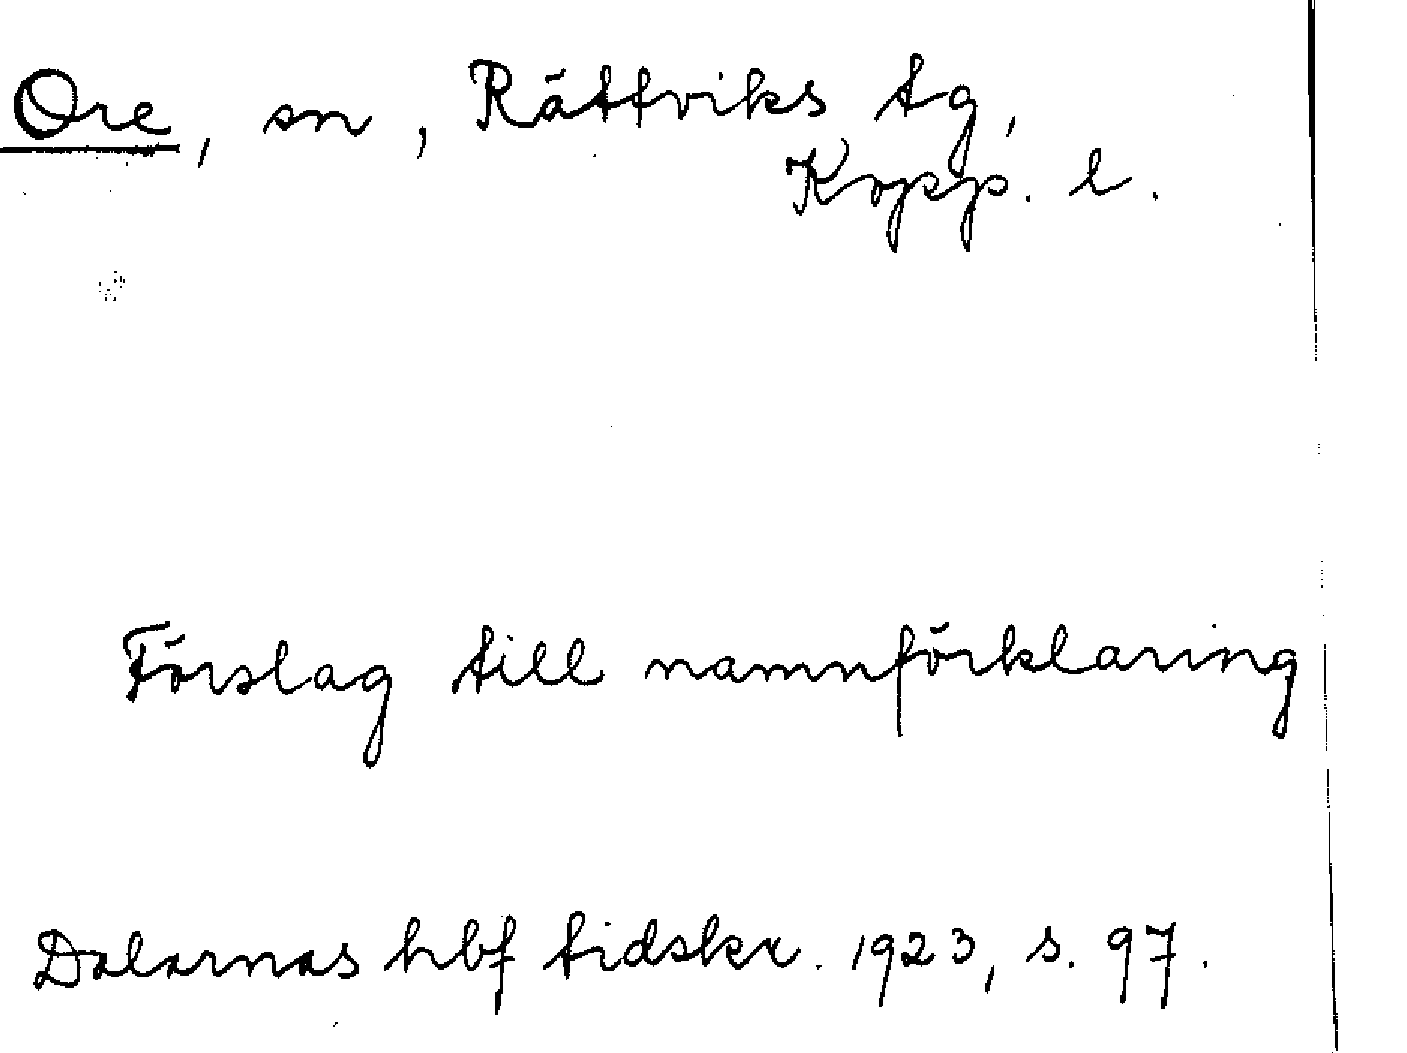 Ore, sn, Rättviks tg,
Kopp. l.
Förslag till namnförklaring
Dalarnas hbf tidskr. 1923, s. 97.